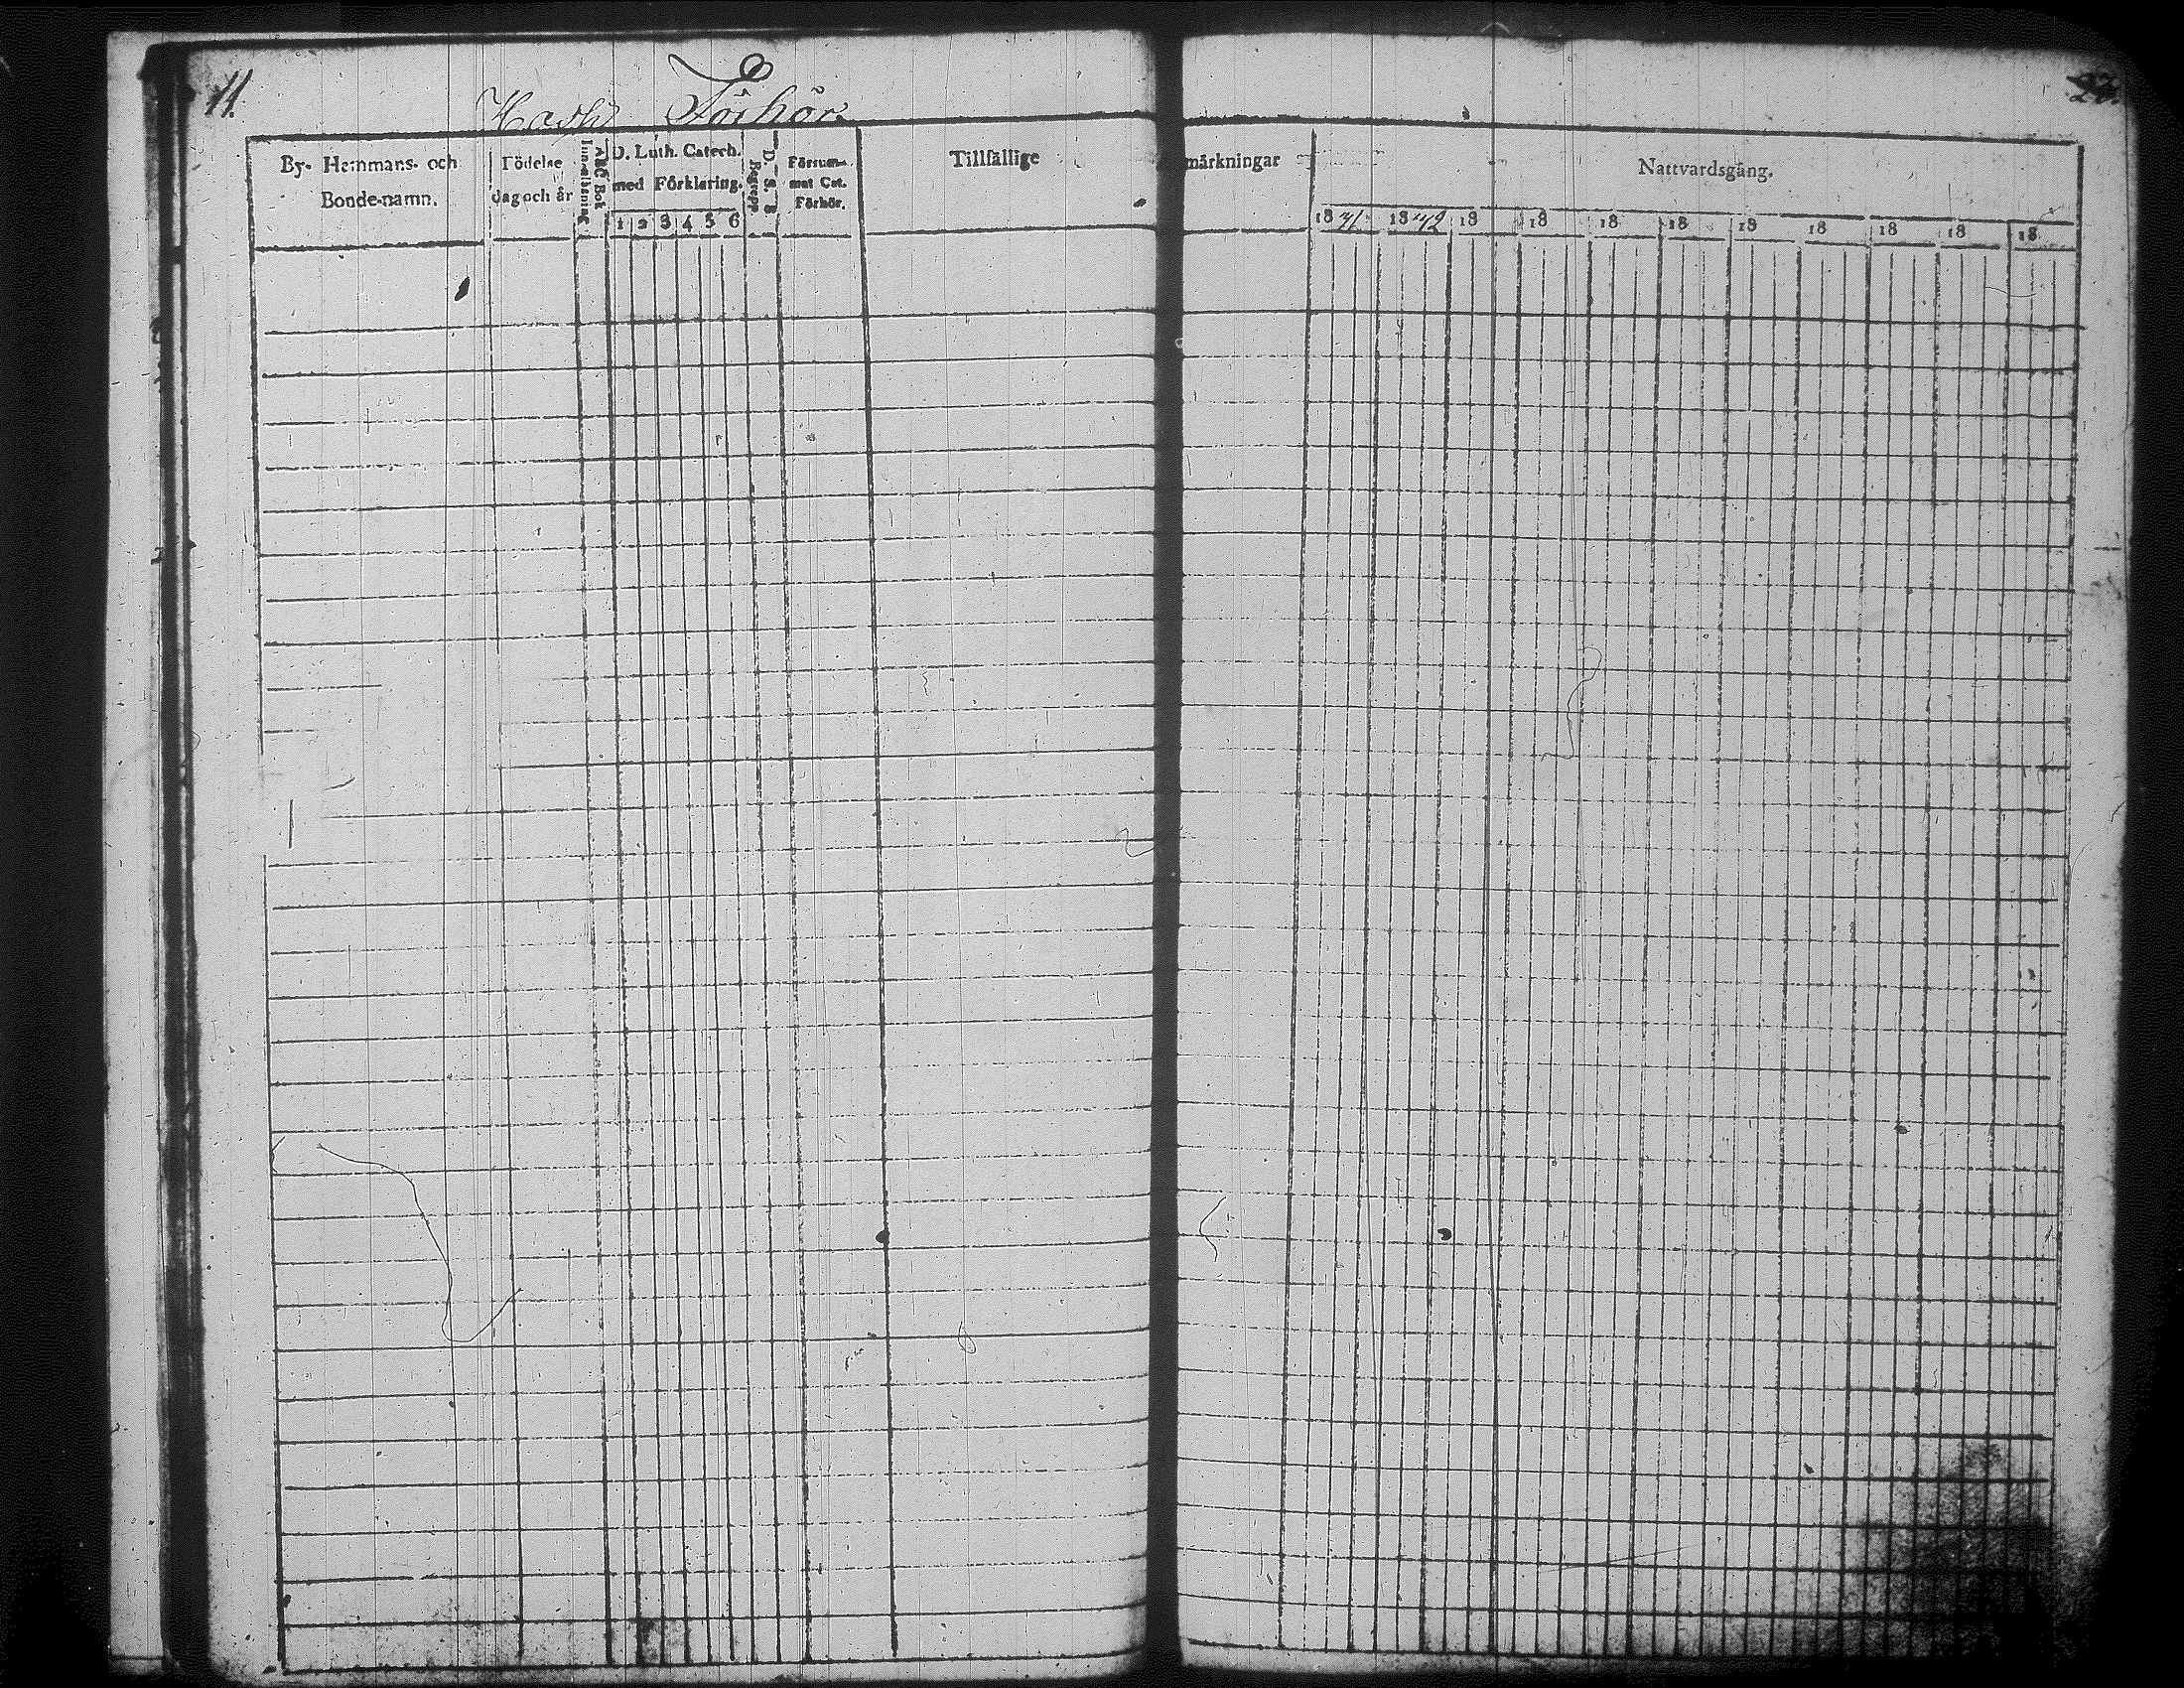 11.
Förhör.
By- Hemmans- och
Bonde-namn.
Födelse
dag och år
Innanläsning
ABC Bok
D. Luth. Catech.
med Förklaring.
1 2 3 4 5 6
D. S. S.
Begrepp
Försum-
mat Cat.
Förhör.
Tillfällige
märkningar
Nattvardsgång.
1841 1842 18 18 18 18 18 18 18 18 18